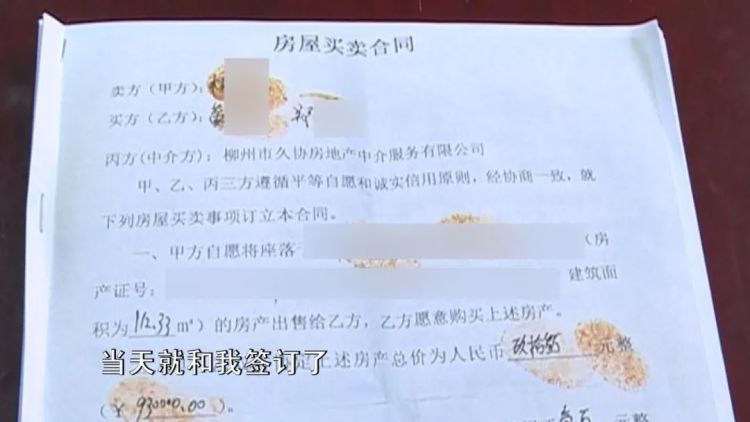 房屋买卖合同
卖方（甲方）：
买方（乙方）：
丙方（中介方）：柳州市久协房地产中介服务有限公司
甲、乙、丙三方遵循平等自愿和诚实信用原则，经协商一致，就
下列房屋买卖事项订立本合同。
一、甲方自愿将座落（房
产证号：建筑面
积为112.33m²）的房产出售给乙方，乙方愿意购买上述房产。
上述房产总价为人民币 元整
当天就和我签订了
（￥930000.00）。
元整